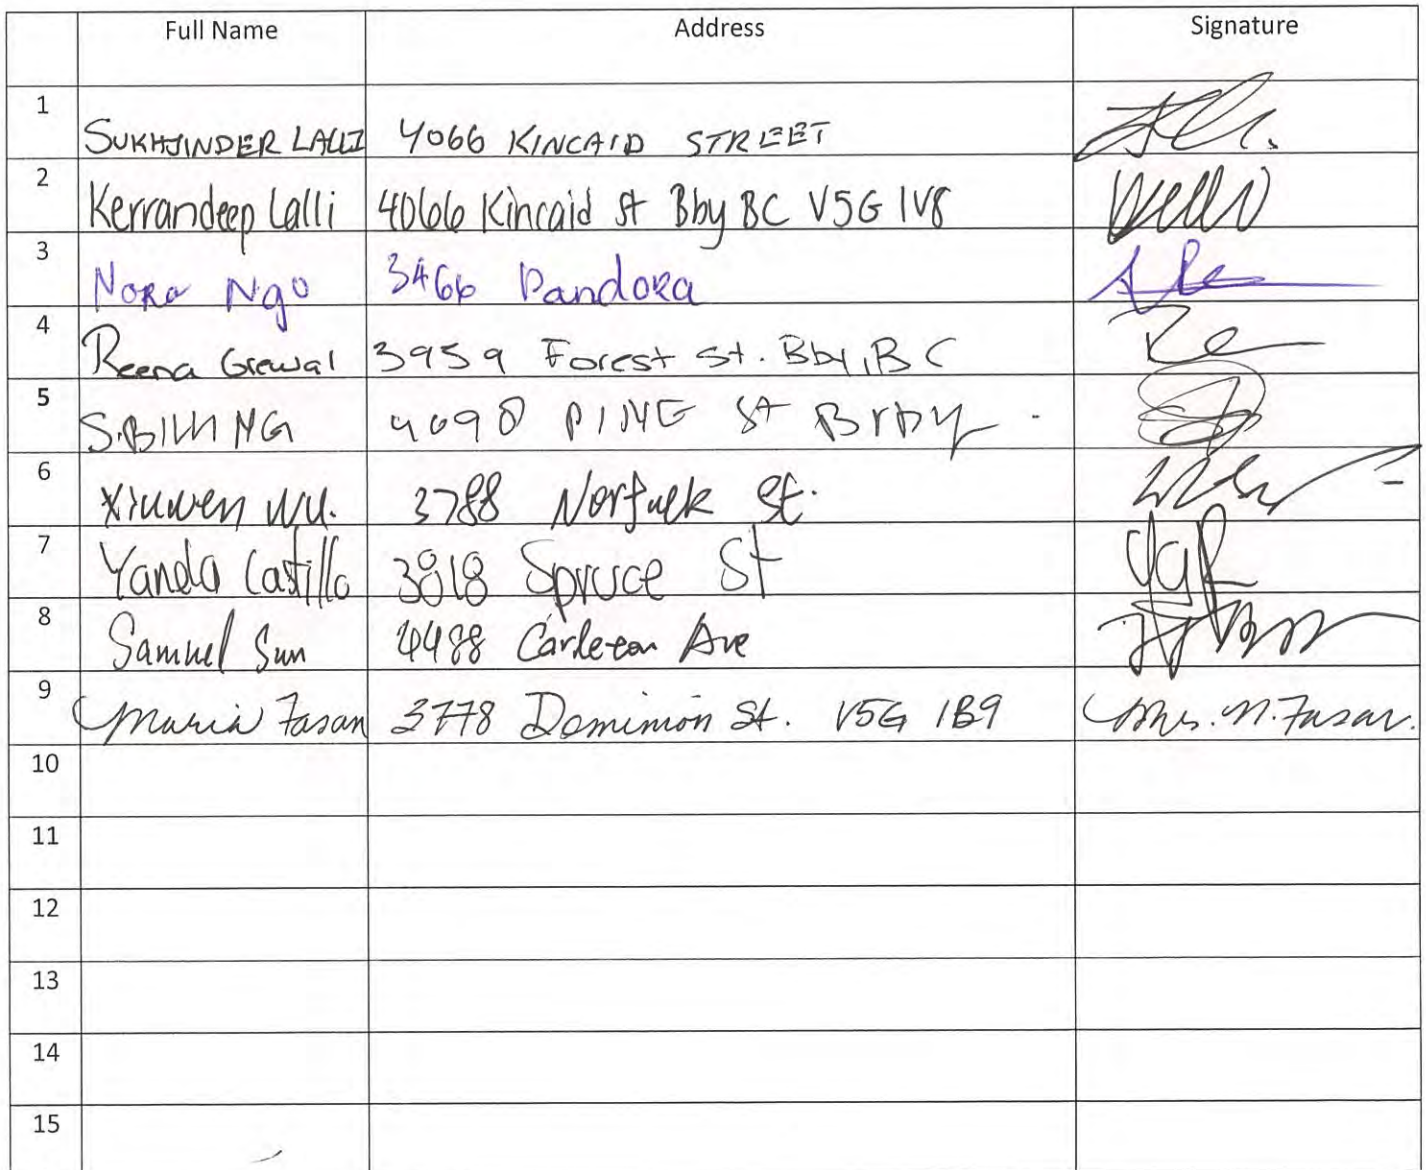 Full Name Address Signature
1 SUKHJINDER LALLI 4066 KINCAID STREET
2 Kerrandeep Lalli 4066 Kincaid St Bby BC V5G 1V8
3 Nora Ngo 3466 Pandora
4 Reena Grewal 3959 Forest St. Bby, BC
5 S. NG 4090 PINE St
6 Xiuwen Wu. 3788 Norfulk St.
7 Castillo 3818 Spruce St
8 Samuel Sun 4488 Carleton Ave
9 Maria Fasan 3778 Dominion St. V5G 1B9 Mrs. M. Fasan.
10
11
12
13
14
15